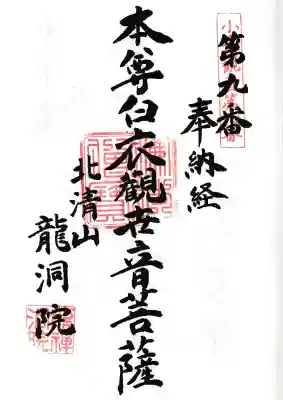 第九番
奉納経
本尊白衣觀世音菩薩
北清山
龍洞院